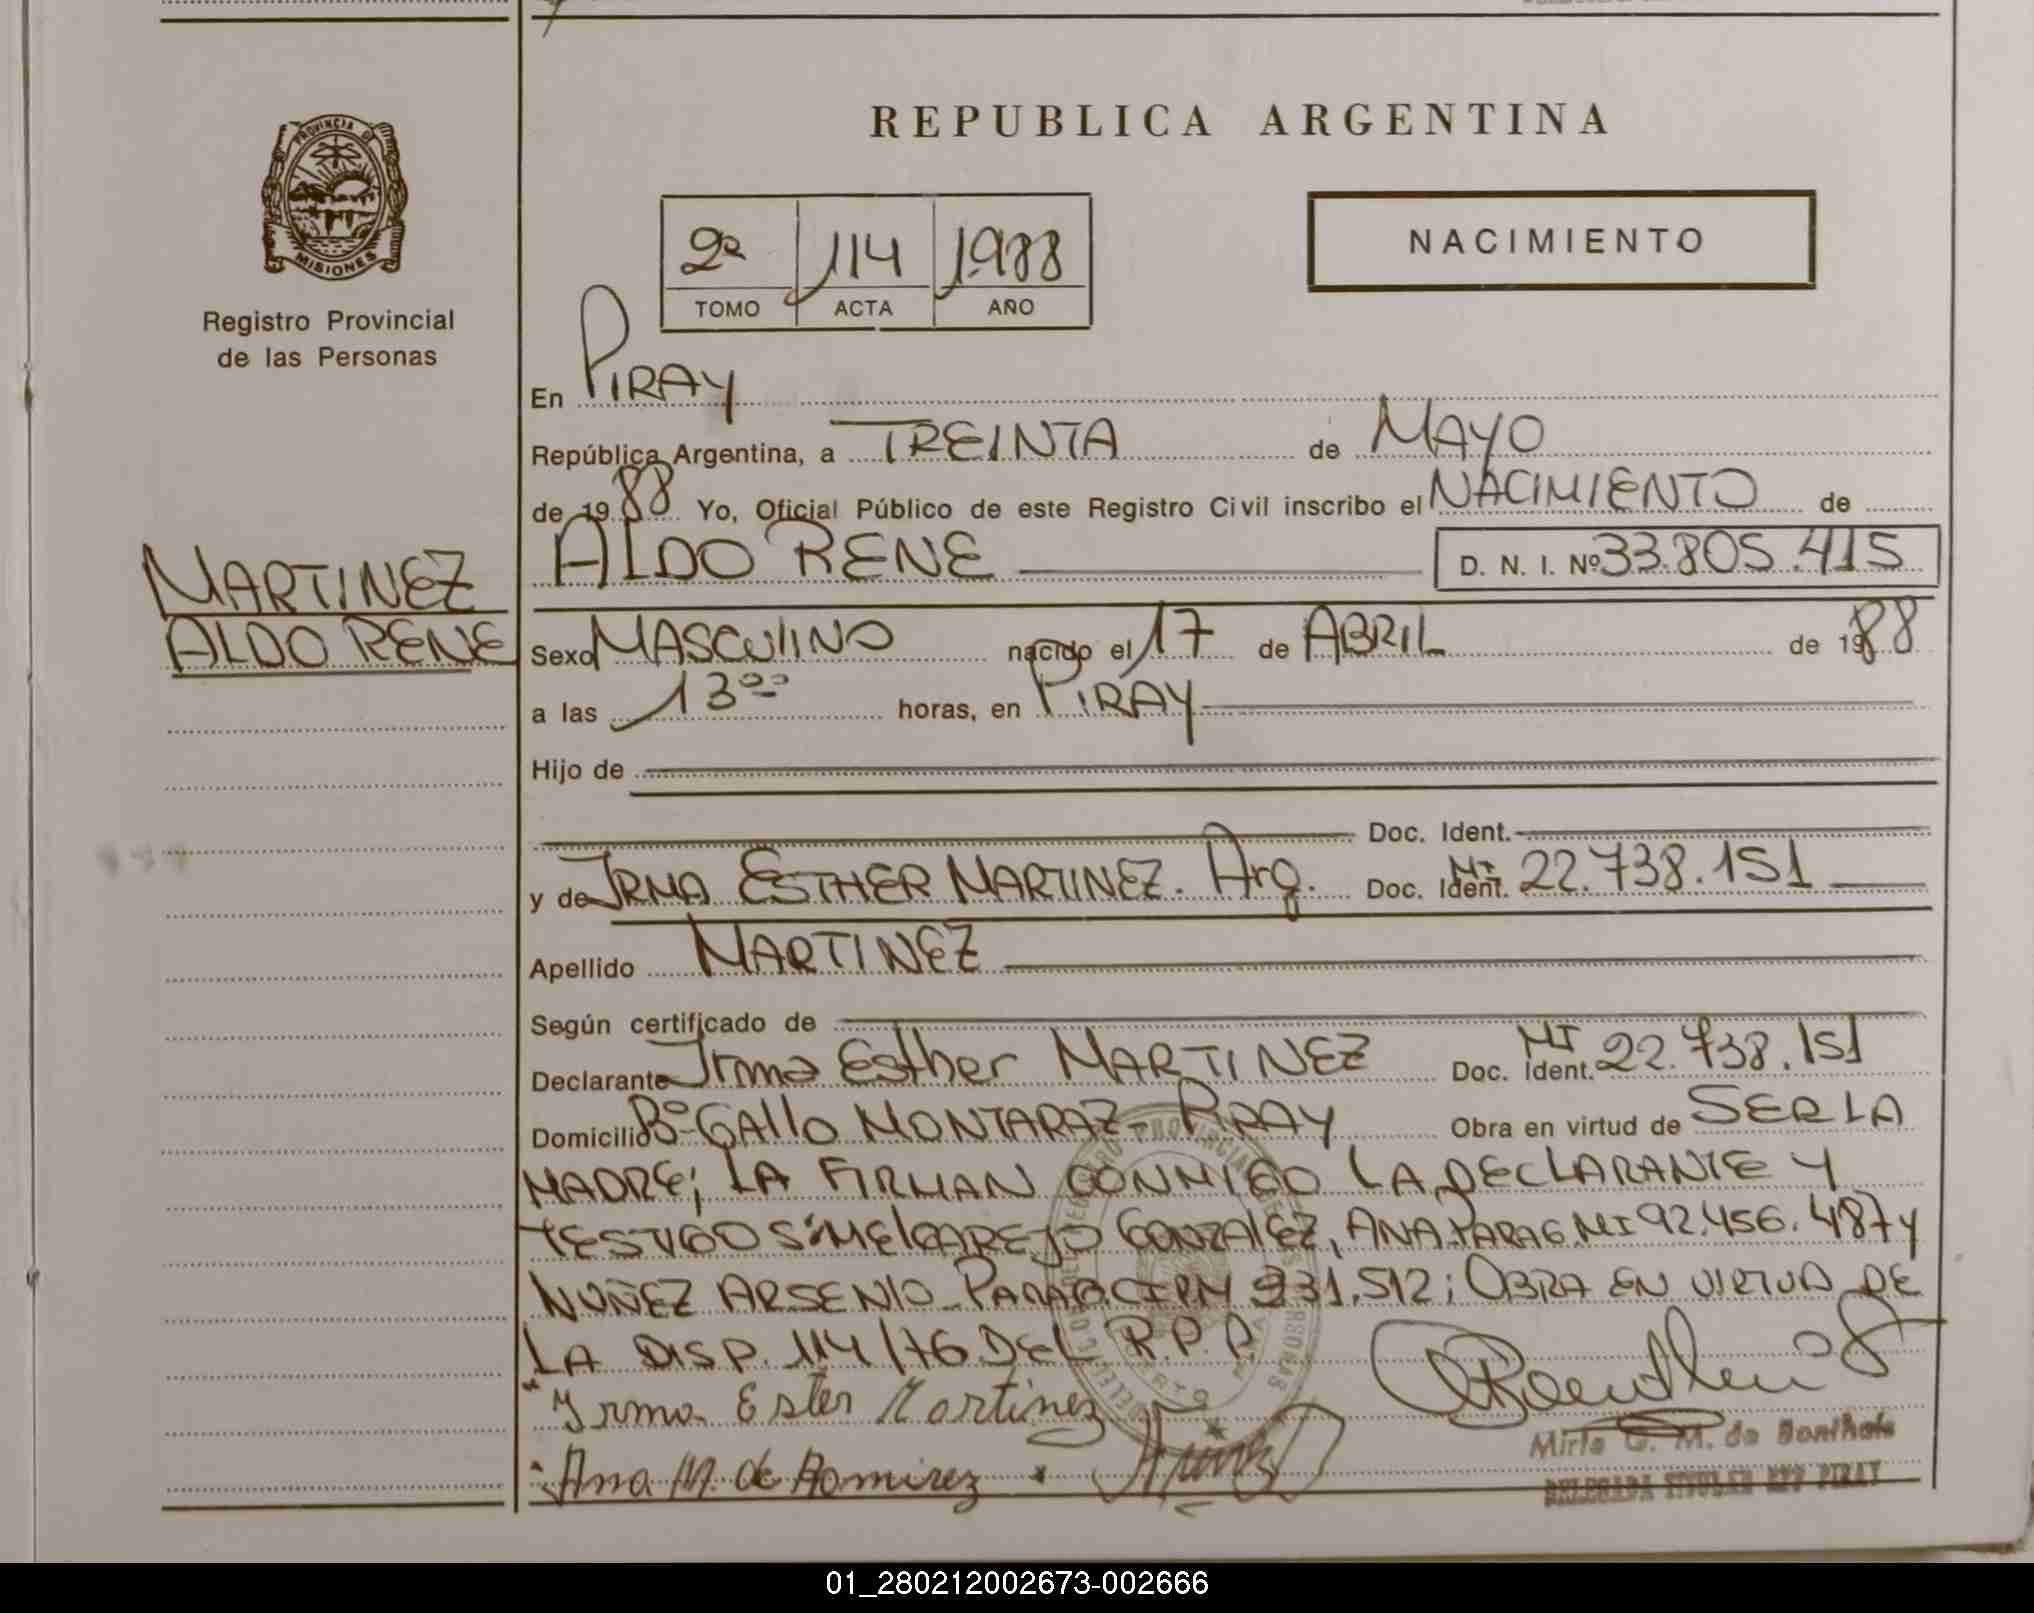 REPUBLICA ARGENTINA
PROVINCIA D
MISIONES
Registro Provincial
de las Personas
2ª 114 1.988
TOMO ACTA AÑO
NACIMIENTO
En PIRAY
República Argentina, a TREINTA de MAYO
de 1988 Yo, Oficial Público de este Registro Civil inscribo el NACIMIENTO de
MARTINEZ
ALDO RENE
ALDO RENE D. N. I. Nº 33.805.415
Sexo MASCULINO nacido el 17 de ABRIL de 1988
a las 13ºº horas, en PIRAY
Hijo de
Doc. Ident.
y de IRMA ESTHER MARTINEZ. Arg. Doc. Ident. MI 22.738.151
Apellido MARTINEZ
Según certificado de
Declarante Irma Esther MARTINEZ Doc. Ident. MI 22.738.151
Domicilio Bº GAllO MONTARAZ - PIRAY Obra en virtud de SER LA
MADRE; LA FIRMAN CONMIGO LA DECLARANTE Y
TESTIGOS: MELGAREJO GONZALEZ, ANA PARAG. MI 92.456.487 y
NUÑEZ ARSENIO PARAG. CIPM 231.512; OBRA EN VIRTUD DE
LA DISP. 114/76 DEL R.P.P.
Irma Ester Martinez
Ana M. de Ramirez
Mirta G. M. de
DELEGADA TITULAR PIRAY
01_280212002673-002666